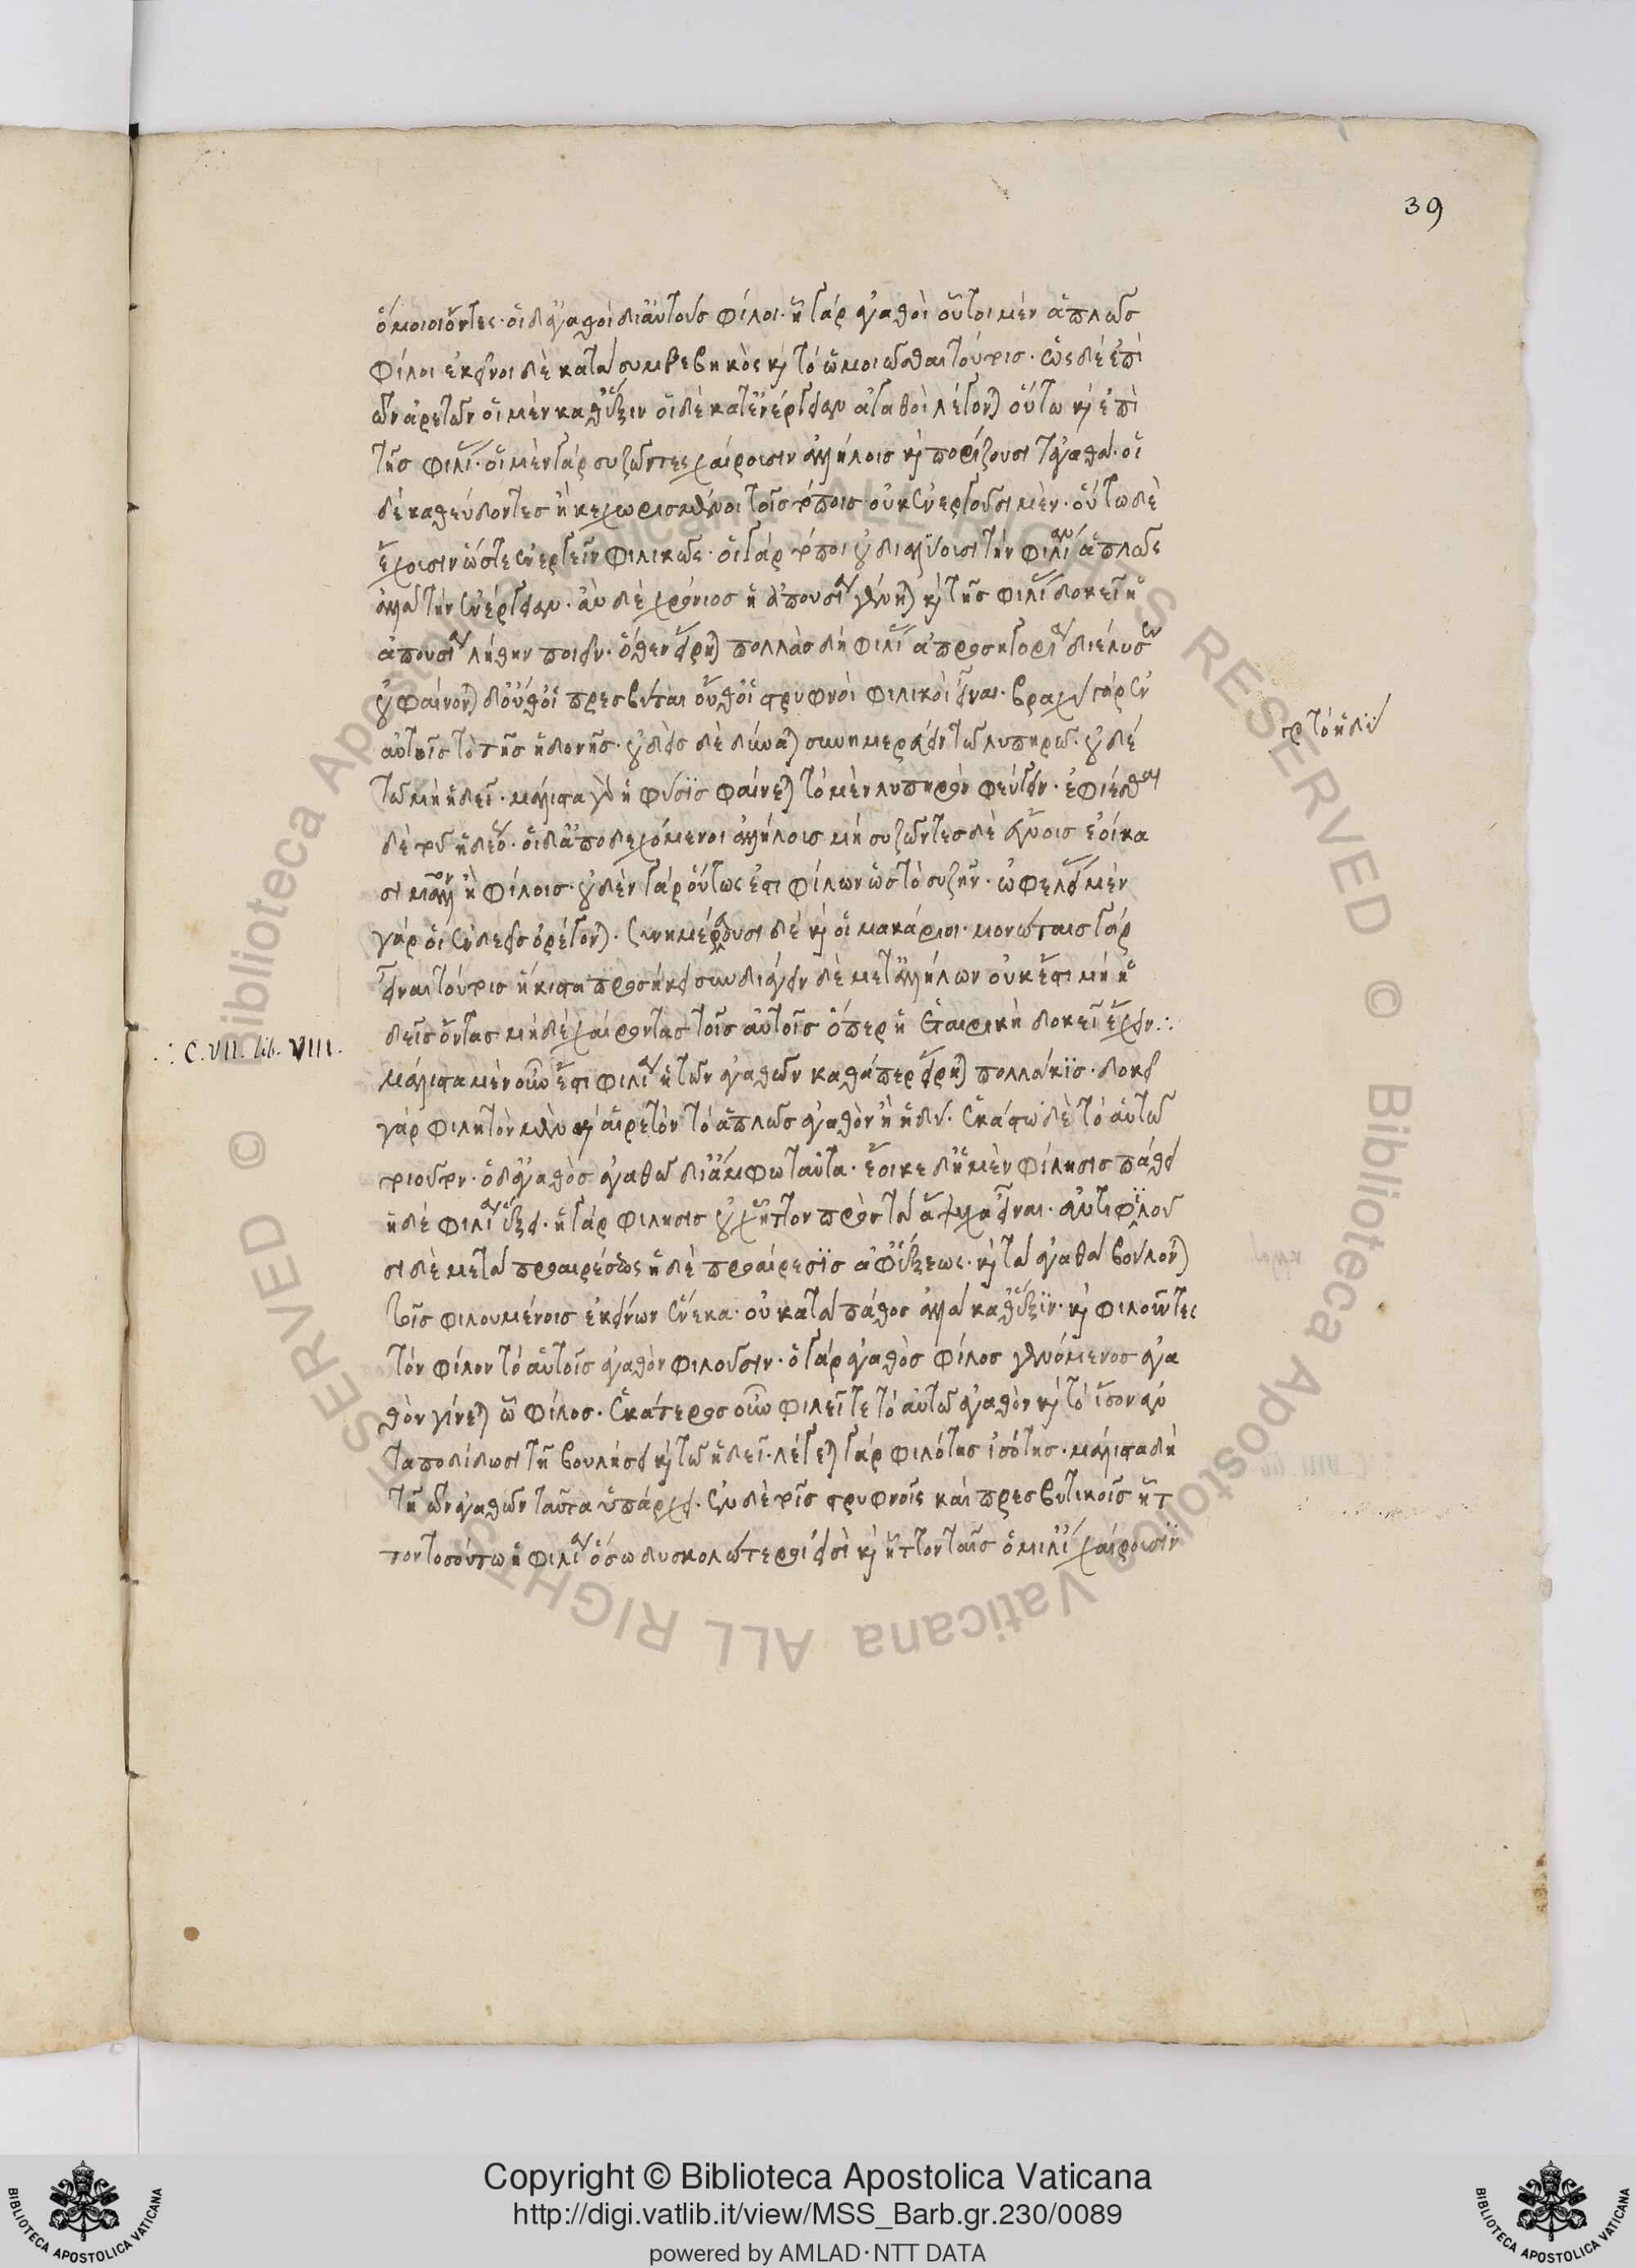 39
ὅμοιοι ὄντες· οἱ δ' ἀγαθοὶ δι' αὑτοὺς φίλοι· ᾗ γὰρ ἀγαθοὶ οὗτοι μὲν ἁπλῶς
φίλοι ἐκεῖνοι δὲ κατὰ συμβεβηκὸς καὶ τῷ ὡμοιῶσθαι τούτοις· ὥς δὲ ἐπὶ
τῶν ἀρετῶν οἱ μὲν καθ' ἕξιν οἱ δὲ κατ' ἐνέργειαν ἀγαθοὶ λέγονται οὕτω καὶ ἐπὶ
τῆς φιλίας· οἱ μὲν γὰρ συζῶντες χαίρουσιν ἀλλήλοις καὶ πορίζουσι τἀγαθά· οἱ
δὲ καθεύδοντες ἢ κεχωρισμένοι τοῖς τόποις οὐκ ἐνεργοῦσι μὲν· οὕτω δὲ
ἔχουσιν ὥστε ἐνεργεῖν φιλικῶς· οἱ γὰρ τόποι οὐ διαλύουσι τὴν φιλίαν ἁπλῶς
ἀλλὰ τὴν ἐνέργειαν· ἂν δὲ χρόνιος ἡ ἀπουσία γένηται καὶ τῆς φιλίας δοκεῖ ἡ
ἀπουσία λήθην ποιεῖν· ὅθεν εἴρηται πολλὰς δὴ φιλίας ἀπροσηγορία διέλυσεν
οὐ φαίνονται δ' οὔθ' οἱ πρεσβύται οὔθ' οἱ στρυφνοὶ φιλικοὶ εἶναι· βραχὺ γὰρ ἐν
αὐτοῖς τὸ τῆς ἡδονῆς· οὐδεὶς δὲ δύναται συνημερεύειν τῷ λυπηρῷ· οὐδὲ
τῷ μὴ ἡδεῖ· μάλιστα γὰρ ἡ φύσις φαίνεται τὸ μὲν λυπηρὸν φεύγειν· ἐφίεσθαι
δὲ τοῦ ἡδέος· οἱ δ' ἀποδεχόμενοι ἀλλήλοις μὴ συζῶντες δὲ εὔνοις ἐοίκα
σι μᾶλλον ἢ φίλοις· οὐδὲν γὰρ οὕτως ἐστι φίλων ὡς τὸ συζῆν· ὠφελείας μὲν
γὰρ οἱ ἐνδεεῖς ὀρέγονται· συνημερεύουσι δὲ καὶ οἱ μακάριοι· μονώταις γὰρ
εἶναι τούτοις ἥκιστα προσήκει συνδιάγειν δὲ μετ' ἀλλήλων οὐκ ἔστι μὴ ἡ
δεῖς ὄντας μηδὲ χαίροντας τοῖς αὐτοῖς ὅπερ ἡ ἑταιρικὴ δοκεῖ ἔχειν∴
μάλιστα μὲν οὖν ἐστι φιλία ἡ τῶν ἀγαθῶν καθάπερ εἴρηται πολλάκις· δοκεῖ
γὰρ φιλητὸν μὲν καὶ αἱρετὸν τὸ ἁπλῶς ἀγαθὸν ἢ ἡδύ· ἑκάστῳ δὲ τὸ αὑτῷ
τοιοῦτον· ὁ δ' ἀγαθὸς ἀγαθῷ δι' ἄμφω ταῦτα· ἔοικε δ' ἡ μὲν φίλησις πάθει
ἡ δὲ φιλία ἕξει· ἡ γὰρ φίλησις οὐχ ἧττον πρὸς τὰ ἄψυχα εἶναι· ἀντιφιλοῦ
σι δὲ μετὰ προαιρέσεως ἡ δὲ προαίρεσις ἀφ' ἕξεως· καὶ τὰ ἀγαθὰ βούλονται
τοῖς φιλουμένοις ἐκείνων ἕνεκα· οὐ κατὰ πάθος ἀλλὰ καθ' ἕξιν· καὶ φιλοῦντες
τὸν φίλον τὸ αὑτοῖς ἀγαθὸν φιλοῦσιν· ὁ γὰρ ἀγαθὸς φίλος γενόμενος ἀγα
θὸν γίνεται ᾧ φίλος· ἑκάτερος οὖν φιλεῖ τε τὸ αὑτῷ ἀγαθὸν καὶ τὸ ἴσον ἀν
ταποδίδωσι τῇ βουλήσει καὶ τῷ ἡδεῖ· λέγεται γὰρ φιλότης ἰσότης· μάλιστα δὴ
τῇ τῶν ἀγαθῶν ταῦτα ὑπάρχει· ἐν δὲ τοῖς στρυφνοῖς καὶ πρεσβυτικοῖς ἧτ
τον τοσούτῳ ἡ φιλία ὅσῳ δυσκολώτεροι εἰσὶ καὶ ἧττον ταῖς ὁμιλίαις χαίρουσιν
∴ C. VII. lib. VIII.
Copyright © Biblioteca Apostolica Vaticana
http://digi.vatlib.it/view/MSS_Barb.gr.230/0089
powered by AMLAD·NTT DATA